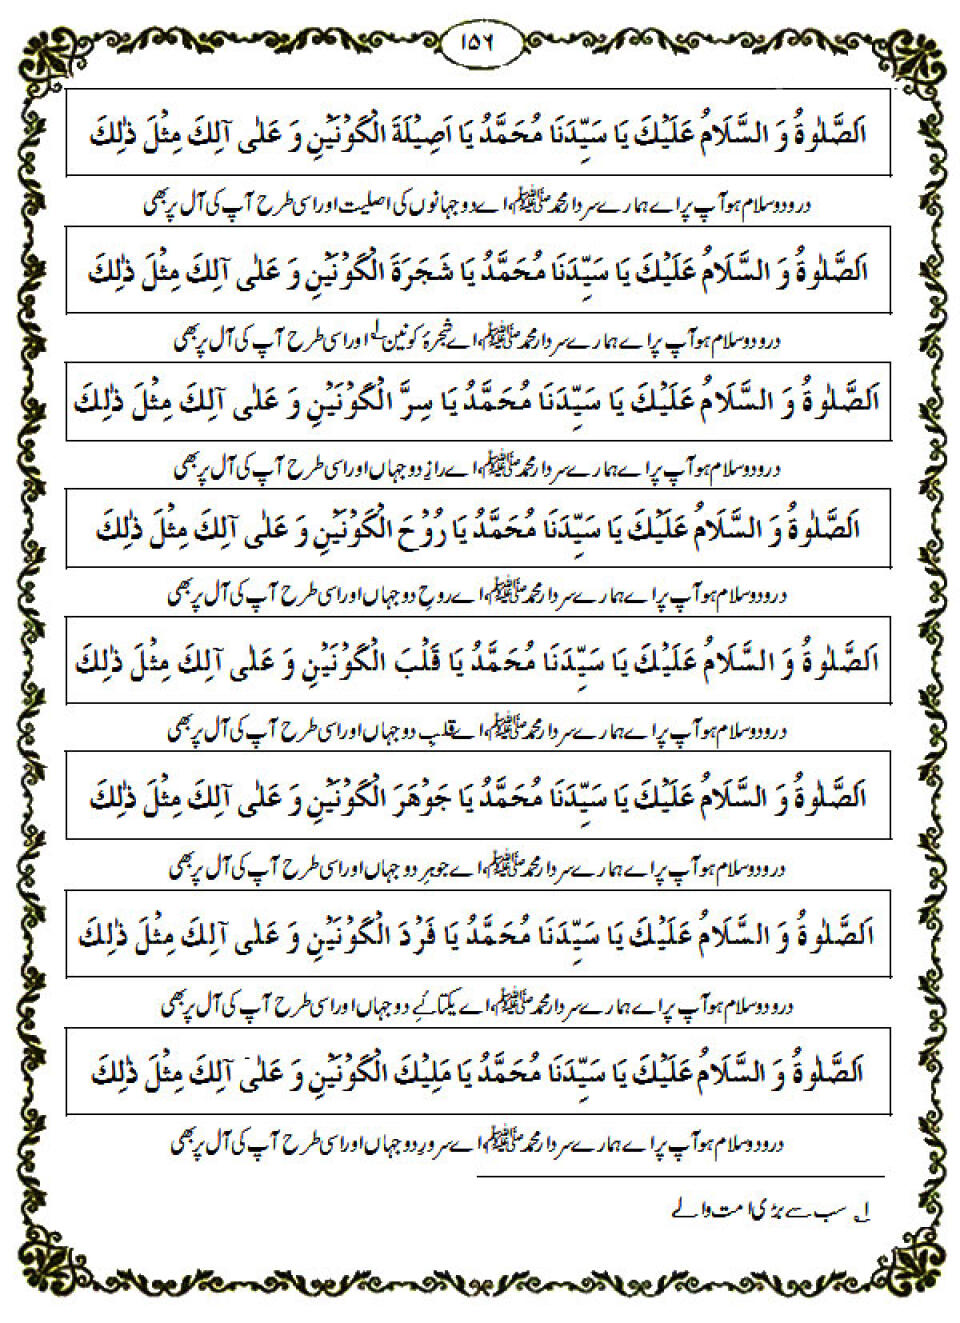 ۱۵۶
اَلصَّلٰوةُ وَ السَّلَامُ عَلَیْكَ یَا سَیِّدَنَا مُحَمَّدُ یَا اَصِیْلَةَ الْکَوْنَیْنِ وَ عَلٰی آلِكَ مِثْلَ ذٰلِكَ
درود و سلام ہو آپ پر اے ہمارے سردار محمد ﷺ، اے دو جہانوں کی اصلیت اور اسی طرح آپ کی آل پر بھی
اَلصَّلٰوةُ وَ السَّلَامُ عَلَیْكَ یَا سَیِّدَنَا مُحَمَّدُ یَا شَجَرَةَ الْکَوْنَیْنِ وَ عَلٰی آلِكَ مِثْلَ ذٰلِكَ
درود و سلام ہو آپ پر اے ہمارے سردار محمد ﷺ، اے شجرۂ کونین لے اور اسی طرح آپ کی آل پر بھی
اَلصَّلٰوةُ وَ السَّلَامُ عَلَیْكَ یَا سَیِّدَنَا مُحَمَّدُ یَا سِرَّ الْکَوْنَیْنِ وَ عَلٰی آلِكَ مِثْلَ ذٰلِكَ
درود و سلام ہو آپ پر اے ہمارے سردار محمد ﷺ، اے رازِ دو جہاں اور اسی طرح آپ کی آل پر بھی
اَلصَّلٰوةُ وَ السَّلَامُ عَلَیْكَ یَا سَیِّدَنَا مُحَمَّدُ یَا رُوْحَ الْکَوْنَیْنِ وَ عَلٰی آلِكَ مِثْلَ ذٰلِكَ
درود و سلام ہو آپ پر اے ہمارے سردار محمد ﷺ، اے روحِ دو جہاں اور اسی طرح آپ کی آل پر بھی
اَلصَّلٰوةُ وَ السَّلَامُ عَلَیْكَ یَا سَیِّدَنَا مُحَمَّدُ یَا قَلْبَ الْکَوْنَیْنِ وَ عَلٰی آلِكَ مِثْلَ ذٰلِكَ
درود و سلام ہو آپ پر اے ہمارے سردار محمد ﷺ، اے قلبِ دو جہاں اور اسی طرح آپ کی آل پر بھی
اَلصَّلٰوةُ وَ السَّلَامُ عَلَیْكَ یَا سَیِّدَنَا مُحَمَّدُ یَا جَوْهَرَ الْکَوْنَیْنِ وَ عَلٰی آلِكَ مِثْلَ ذٰلِكَ
درود و سلام ہو آپ پر اے ہمارے سردار محمد ﷺ، اے جوہرِ دو جہاں اور اسی طرح آپ کی آل پر بھی
اَلصَّلٰوةُ وَ السَّلَامُ عَلَیْكَ یَا سَیِّدَنَا مُحَمَّدُ یَا فَرْدَ الْکَوْنَیْنِ وَ عَلٰی آلِكَ مِثْلَ ذٰلِكَ
درود و سلام ہو آپ پر اے ہمارے سردار محمد ﷺ، اے یکتائے دو جہاں اور اسی طرح آپ کی آل پر بھی
اَلصَّلٰوةُ وَ السَّلَامُ عَلَیْكَ یَا سَیِّدَنَا مُحَمَّدُ یَا مَلِیْكَ الْکَوْنَیْنِ وَ عَلٰی آلِكَ مِثْلَ ذٰلِكَ
درود و سلام ہو آپ پر اے ہمارے سردار محمد ﷺ، اے سرورِ دو جہاں اور اسی طرح آپ کی آل پر بھی
لے سب سے بڑی امت والے